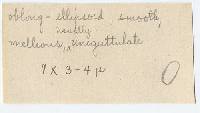 oblong - ellipsoid smooth,
usually
mellious, uniguttulate
9 x 3-4 µ